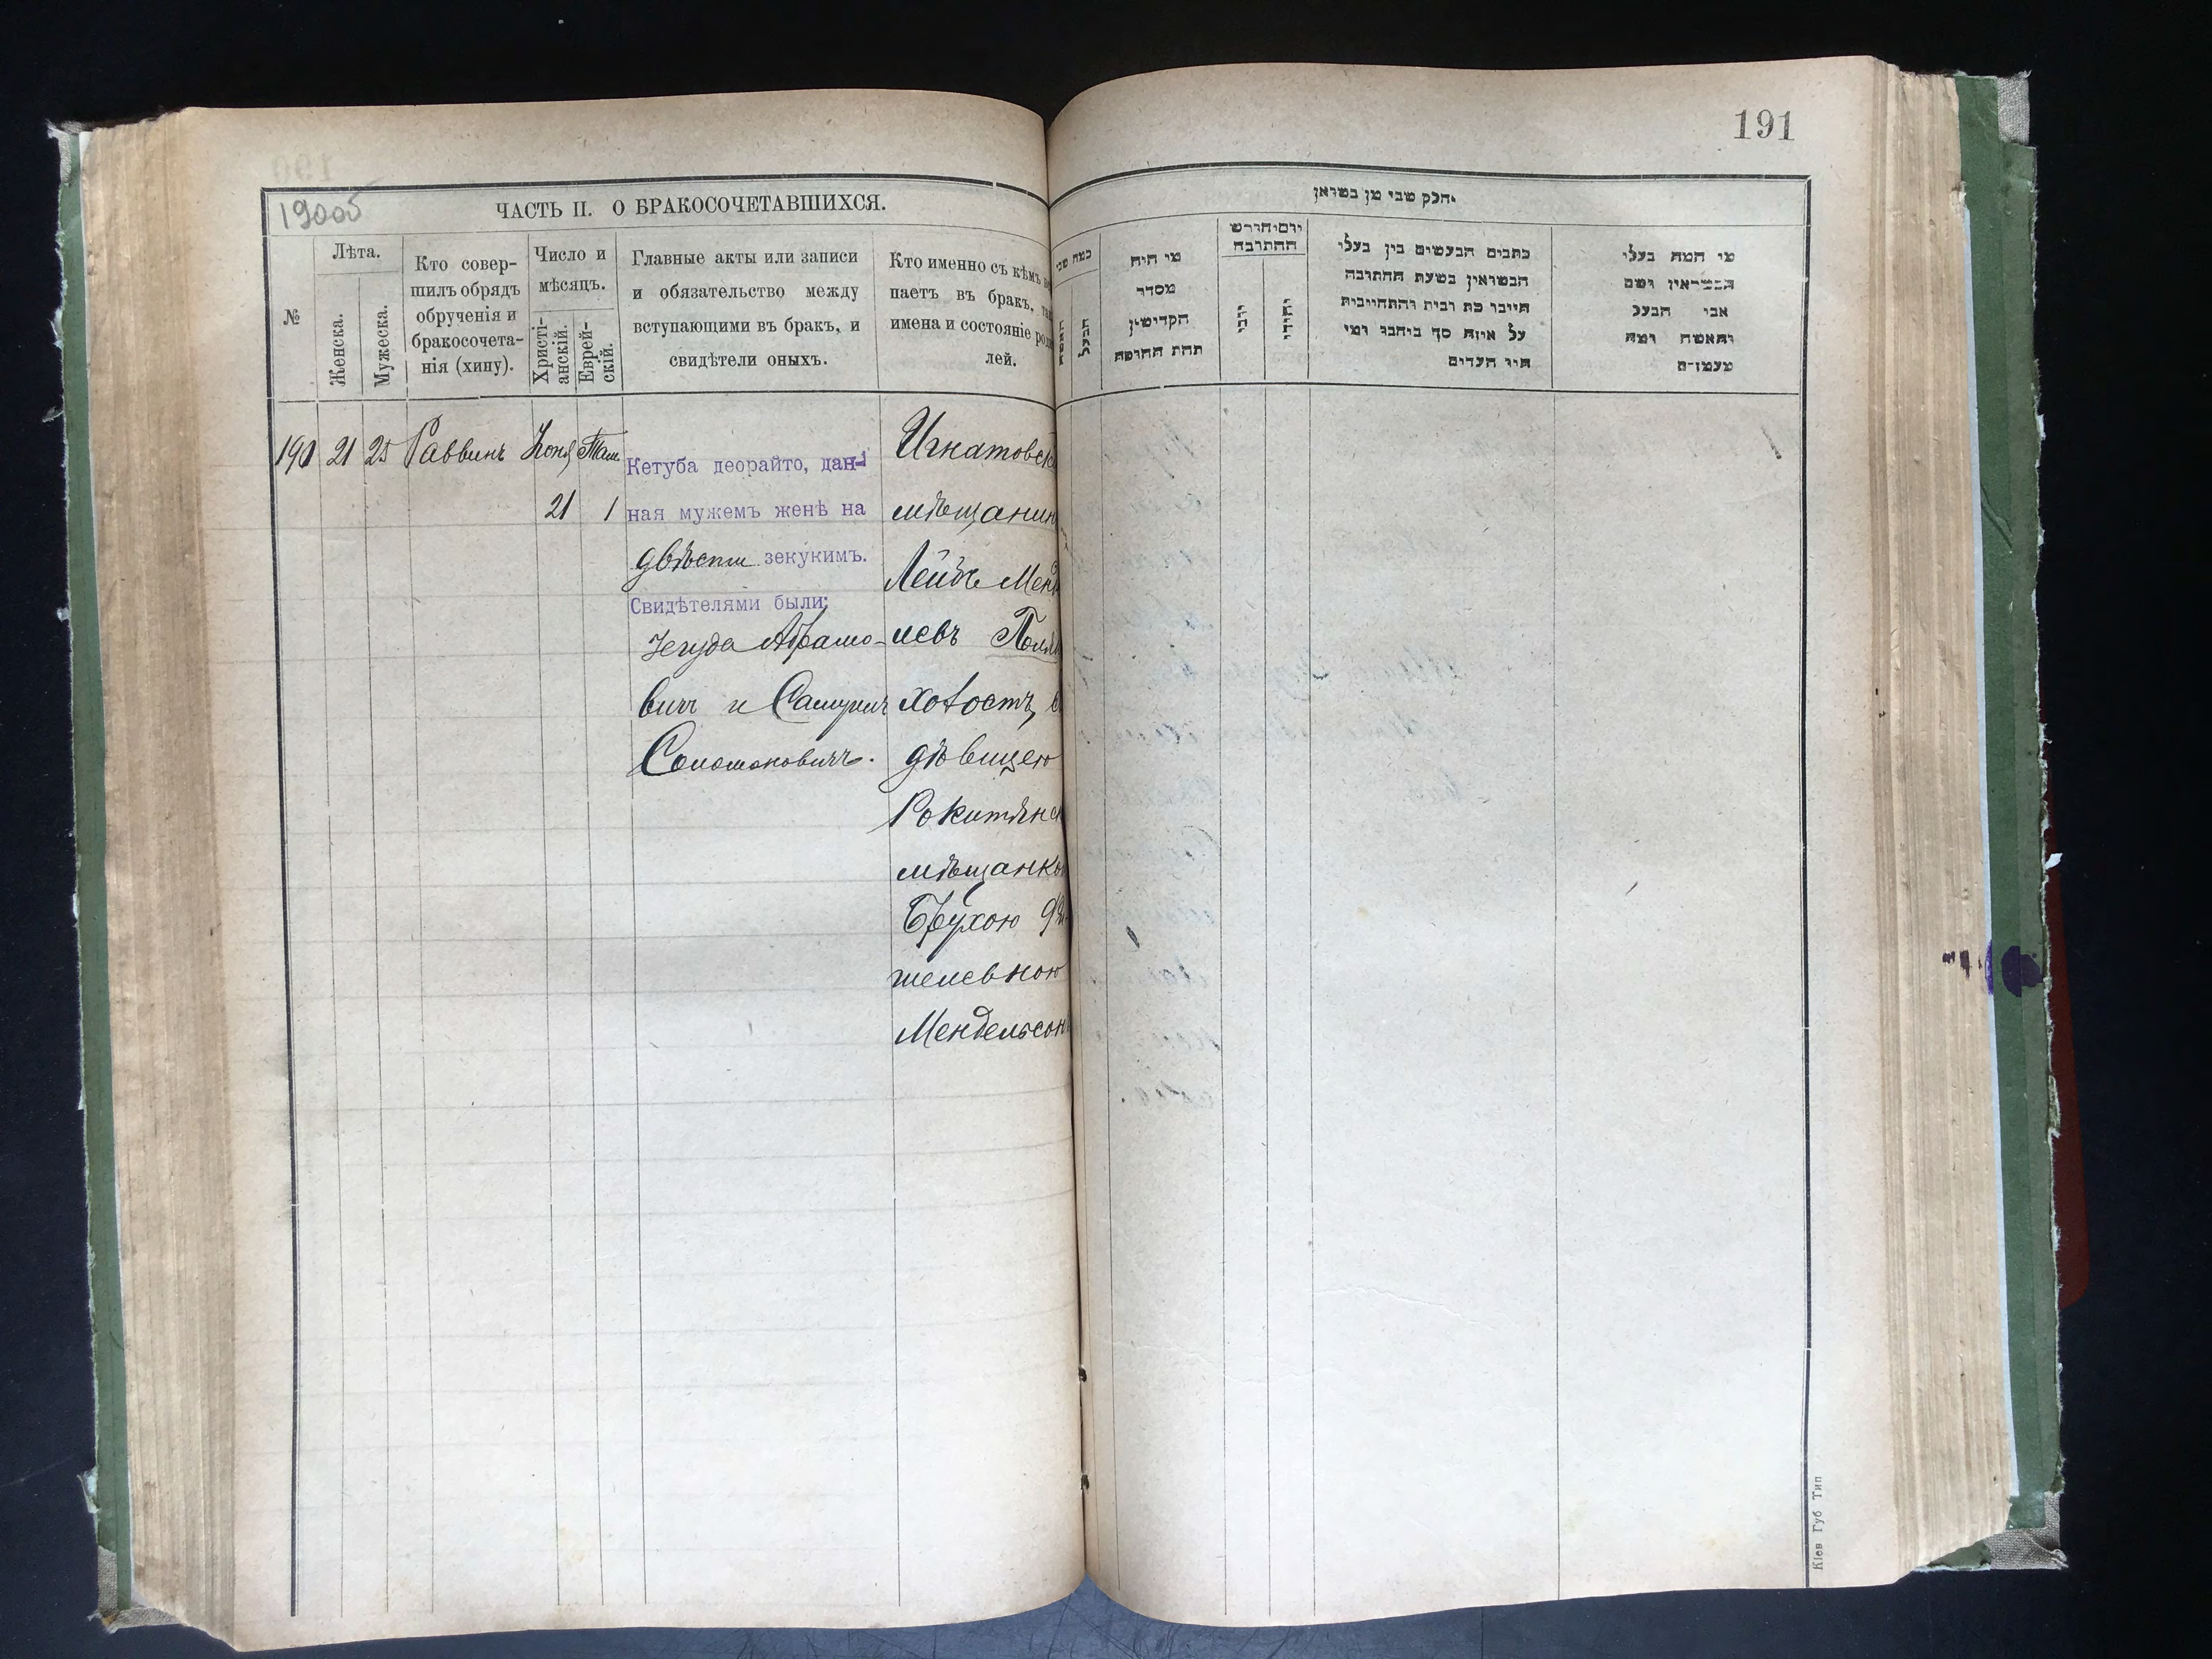 191
190об
ЧАСТЬ II. О БРАКОСОЧЕТАВШИХСЯ.
№
Лѣта.
Женска.
Мужеска.
Кто совер-
шилъ обрядъ
обрученія и
бракосочета-
нія (хипу).
Число и
мѣсяцъ.
Христі-
анскій.
Еврей-
скій.
Главные акты или записи
и обязательство между
вступающими въ бракъ, и
свидѣтели оныхъ.
Кто именно съ кѣмъ
паетъ въ бракъ,
имена и состояніе
лей.
190 21 25 Раввинъ Іюня Там.
21 1
Кетуба деорайто, дан-
ная мужемъ женѣ на
двѣсти зекукимъ.
Свидѣтелями были:
Іегуда Абрамо-
вичъ и Самуилъ
Соломоновичъ.
Игнатовск
мѣщанин
Лейбъ Менд
левъ Поля
ховостъ, с
дѣвицею
Рокитянс
мѣщанко
Брухою
шелевною
Мендельсон
חלק שני מן נשואין
כמה שני
האשה
הבעל
מי היה
מסדר
הקדישין
תחת החופה
יום וחודש
החתונה
כתבים הנעשים בין בעלי
הנשואין בשעת החתונה
חייבו כת ובית והתחייבות
על איזה סך ביחבו ומי
היו העדים
מי המה בעלי
הנשואין ושם
אבי הבעל
והאשה ומה
מעמדם
Кіев Губ Тип